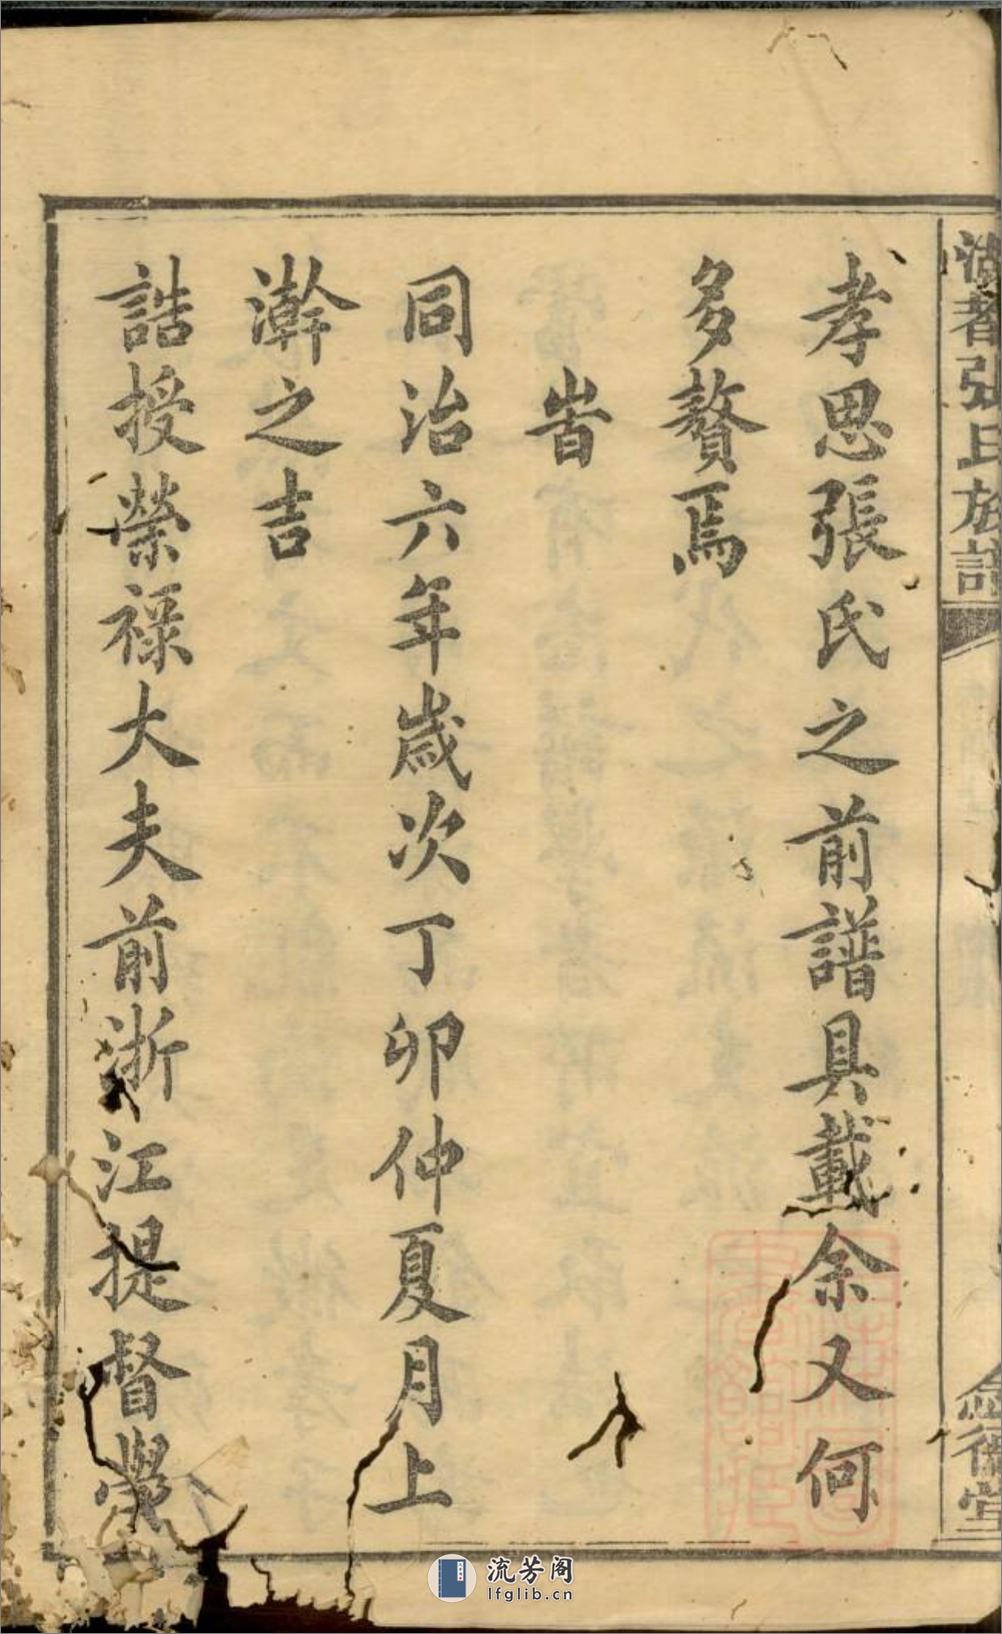 張氏族譜
德堂
孝思張氏之前譜具載余又何
多贅焉
旹
同治六年歲次丁卯仲夏月上
澣之吉
誥授榮祿大夫前浙江提督學
流芳阁
lfglib.cn